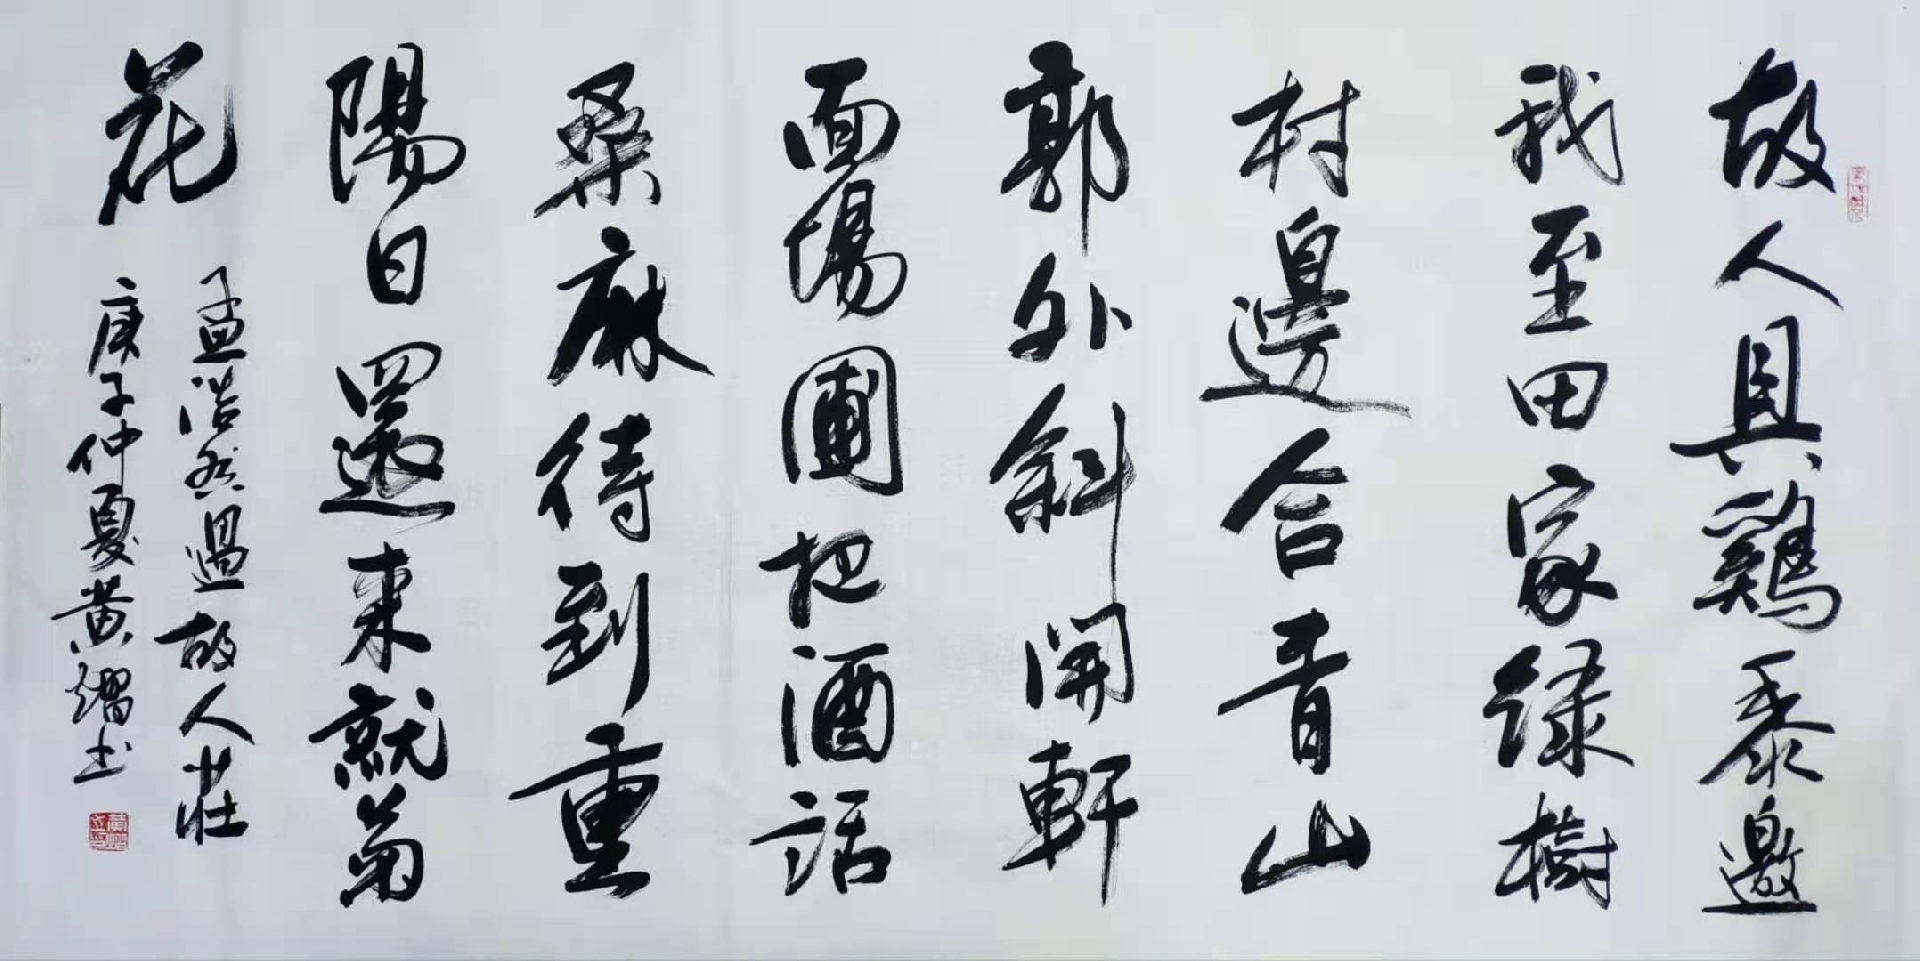 故人具鷄黍邀
我至田家緑樹
村邊合青山
郭外斜開軒
面場圃把酒話
桑麻待到重
陽日還来就菊
花
孟浩然過故人莊
庚子仲夏黄熠书